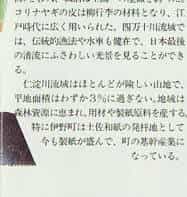 コリナヤギの皮は柳行李の材料となり、江
戸時代に広く用いられた。四万十川流域で
は、伝統的漁法や水車も健在で、日本最後
の清流にふさわしい光景を見ることができ
る。
仁淀川流域はほとんどが険しい山地で、
平地面積はわずか3％に過ぎない。地域は
森林資源に恵まれ、用材や製紙原料を産する。
特に伊野町は土佐和紙の発祥地として
今も製紙が盛んで、町の基幹産業に
なっている。